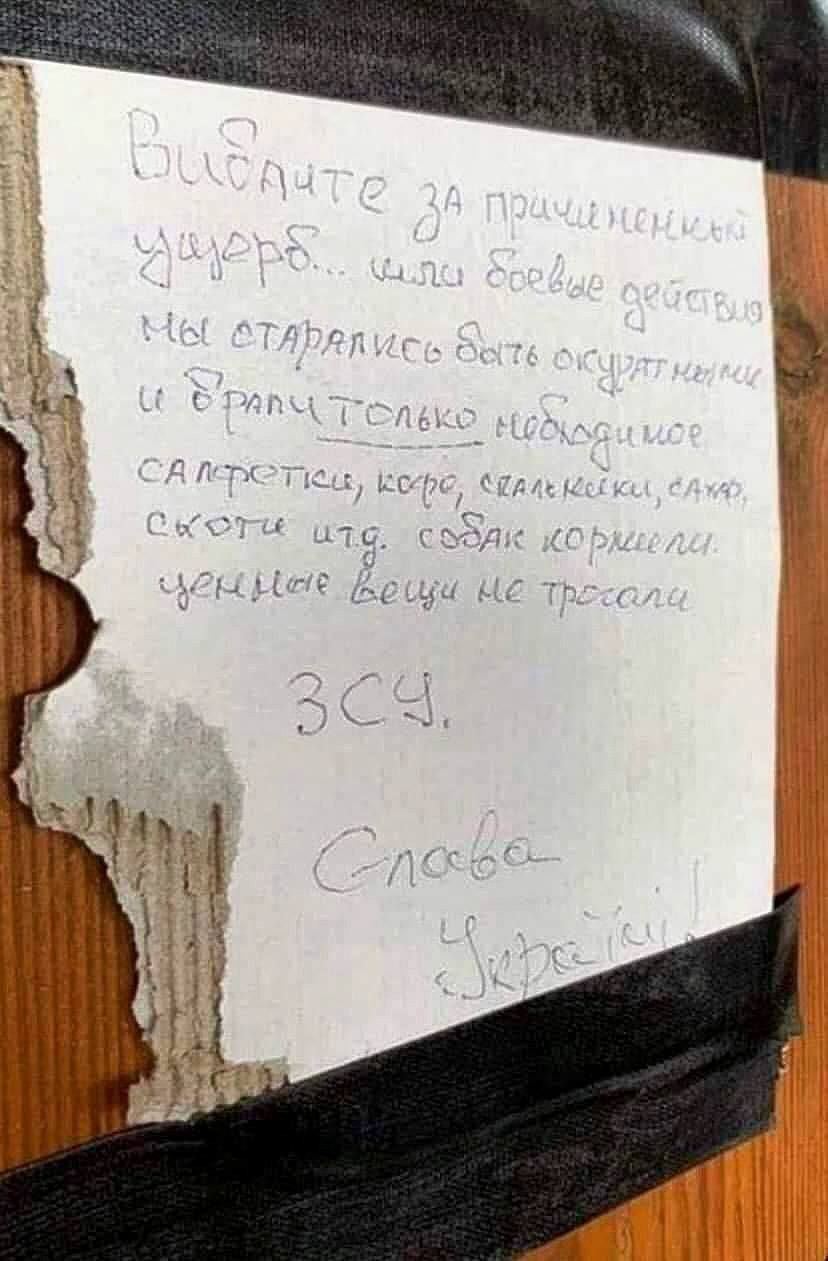 Вибачте за причиненный
ущерб... шли боевые действия
мы старались быть окуратными
и брали только необходимое
салфетки, кофе, спальники, сахар,
скотч итд. собак кормили.
ценные вещи не трогали
ЗСУ.
Слава
Україні!